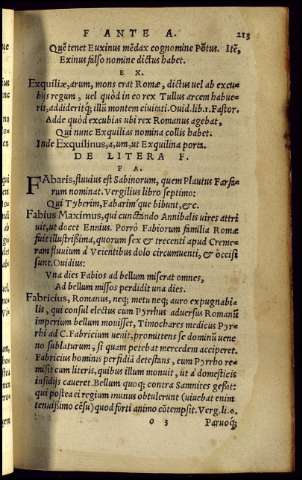 F ANTE A. 213
Quē tenet Euxinus mēdax cognomine Pōtus. Itē,
Exinus falso nomine dictus habet.
E X.
Exquiliæ, arum, mons erat Romæ, dictus uel ab excu-
bijs regum, uel quòd in eo rex Tullus arcem habue-
rit, addiderítq; illū montem ciuitati. Ouid. lib. 2. Fastor.
Adde quòd excubias ubi rex Romanus agebat,
Qui nunc Exquilias nomina collis habet.
Inde Exquilinus, a, um, ut Exquilina porta.
DE LITERA F.
F A.
FAbaris, fluuius est Sabinorum, quem Plautus Farfa-
rum nominat. Vergilius libro septimo:
Qui Tyberim, Fabarím que bibunt, &c.
Fabius Maximus, qui cunctando Annibalis uires attri
uit, ut docet Ennius. Porrò Fabiorum familia Romæ
fuit illustrißima, quorum sex & trecenti apud Creme-
ram fluuium à Veientibus dolo circumuenti, & occisi
sunt. Ouidius:
Vna dies Fabios ad bellum miserat omnes,
Ad bellum missos perdidit una dies.
Fabricius, Romanus, neq; metu neq; auro expugnabi-
lis, qui consul electus cum Pyrrhus aduersus Romanū
imperium bellum mouisset, Timochares medicus Pyr-
rhi ad C. Fabricium uenit, promittens se dominū uene
no sublaturum, si quam petebat mercedem acciperet.
Fabricius hominis perfidiā detestans, cum Pyrrho re-
misit cum literis, quibus illum monuit, ut à domesticis
insidijs caueret. Bellum quoq; contra Samnites gessit:
qui postea ei regium munus obtulerunt (uiuebat enim
tenuißimo cēsu) quod forti animo cōtempsit. Verg. li. 6.
o 3 Paruoq;